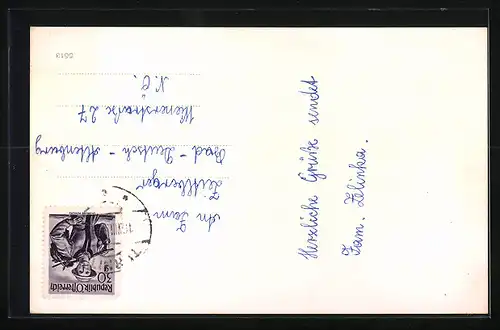 Herzliche Grüße sendet
Fam. Zelinka.
An
Fam
Zeitlberger
Bad - Deutsch - Altenburg
Wienerstraße 27
N.Ö.
30
Republik Österreich